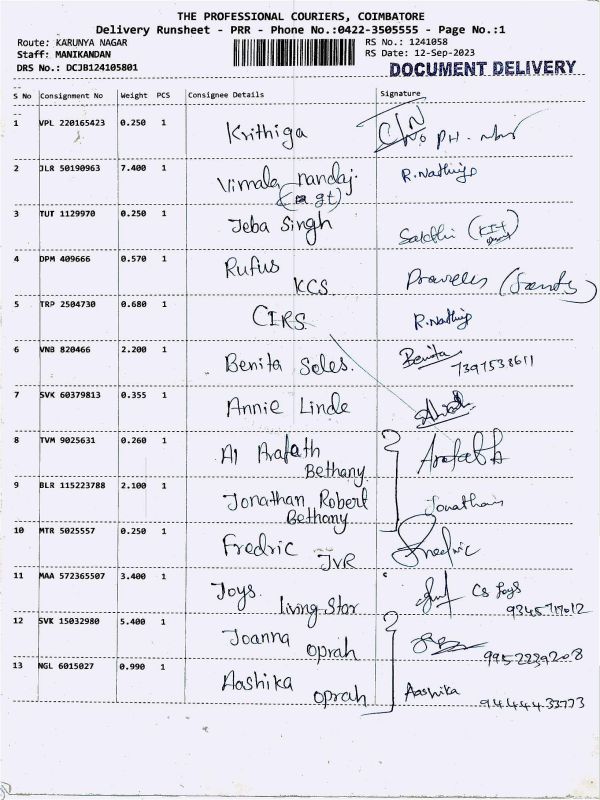 THE PROFESSIONAL COURIERS, COIMBATORE
Delivery Runsheet - PRR - Phone No.:0422-3505555 - Page No.:1
Route: KARUNYA NAGAR RS No.: 1241058
Staff: MANIKANDAN RS Date: 12-Sep-2023
DRS No.: DCJB124105801 DOCUMENT DELIVERY
S No Consignment No Weight PCS Consignee Details Signature
1 VPL 220165423 0.250 1 Krithiga C/N No PH.
2 JLR 50190963 7.400 1 Vimala nandaj. R.Nathiya
3 TUT 1129970 0.250 1 Jeba Singh Sakthi
4 DPM 409666 0.570 1 Rufus KCS
5 TRP 2504730 0.680 1 CIRS R.Nathiya
6 VNB 820466 2.200 1 Benita Seles. Benita 7397538611
7 SVK 60379813 0.355 1 Annie Linde
8 TVM 9025631 0.260 1 Al Arafath Bethany Arafath
9 BLR 115223788 2.100 1 Jonathan Robert Bethany Jonathan
10 MTR 5025557 0.250 1 Fredric JVR Fredric
11 MAA 572365507 3.400 1 Joys. living Star Cs Joys
12 SVK 15032980 5.400 1 Joanna oprah
13 NGL 6015027 0.990 1 Aashika oprah Aashika 9444433773